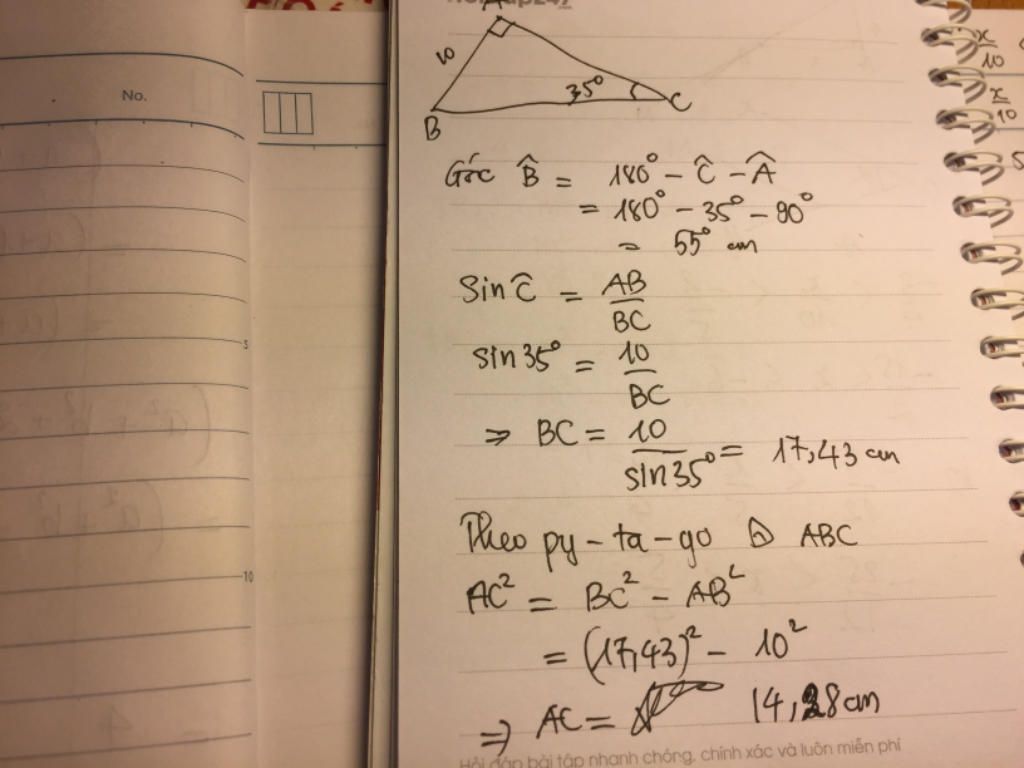 No.
5
10
10
35°
B
C
x/10
x/10
Góc B̂ = 180° - Ĉ - Â
= 180° - 35° - 90°
= 55° cm
Sin Ĉ = AB/BC
Sin 35° = 10/BC
⇒ BC = 10/sin35° = 17,43 cm
Theo py-ta-go △ ABC
AC² = BC² - AB²
= (17,43)² - 10²
⇒ AC = 14,28 cm
Hỏi đáp bài tập nhanh chóng, chính xác và luôn miễn phí